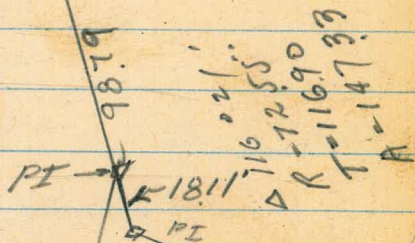 98.79
PI
18.11'
PI
Δ 116°21'
R = 72.55
T = 116.90
A = 147.33